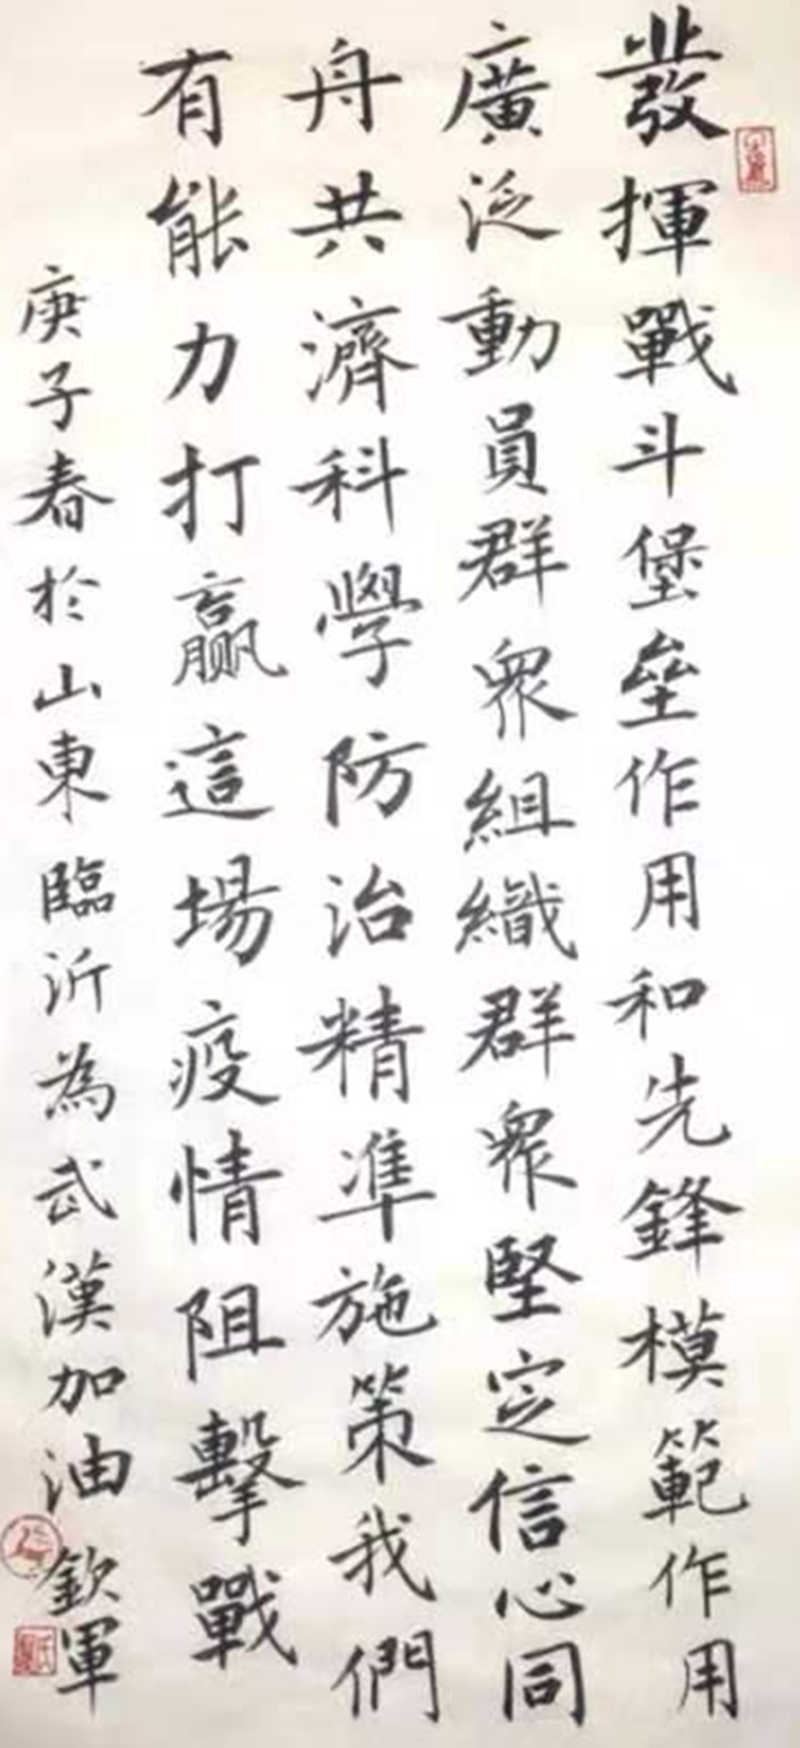 發揮戰斗堡壘作用和先鋒模範作用
廣泛動員群眾組織群眾堅定信心同
舟共濟科學防治精準施策我們
有能力打贏這場疫情阻擊戰
庚子春於山東臨沂為武漢加油
欽軍